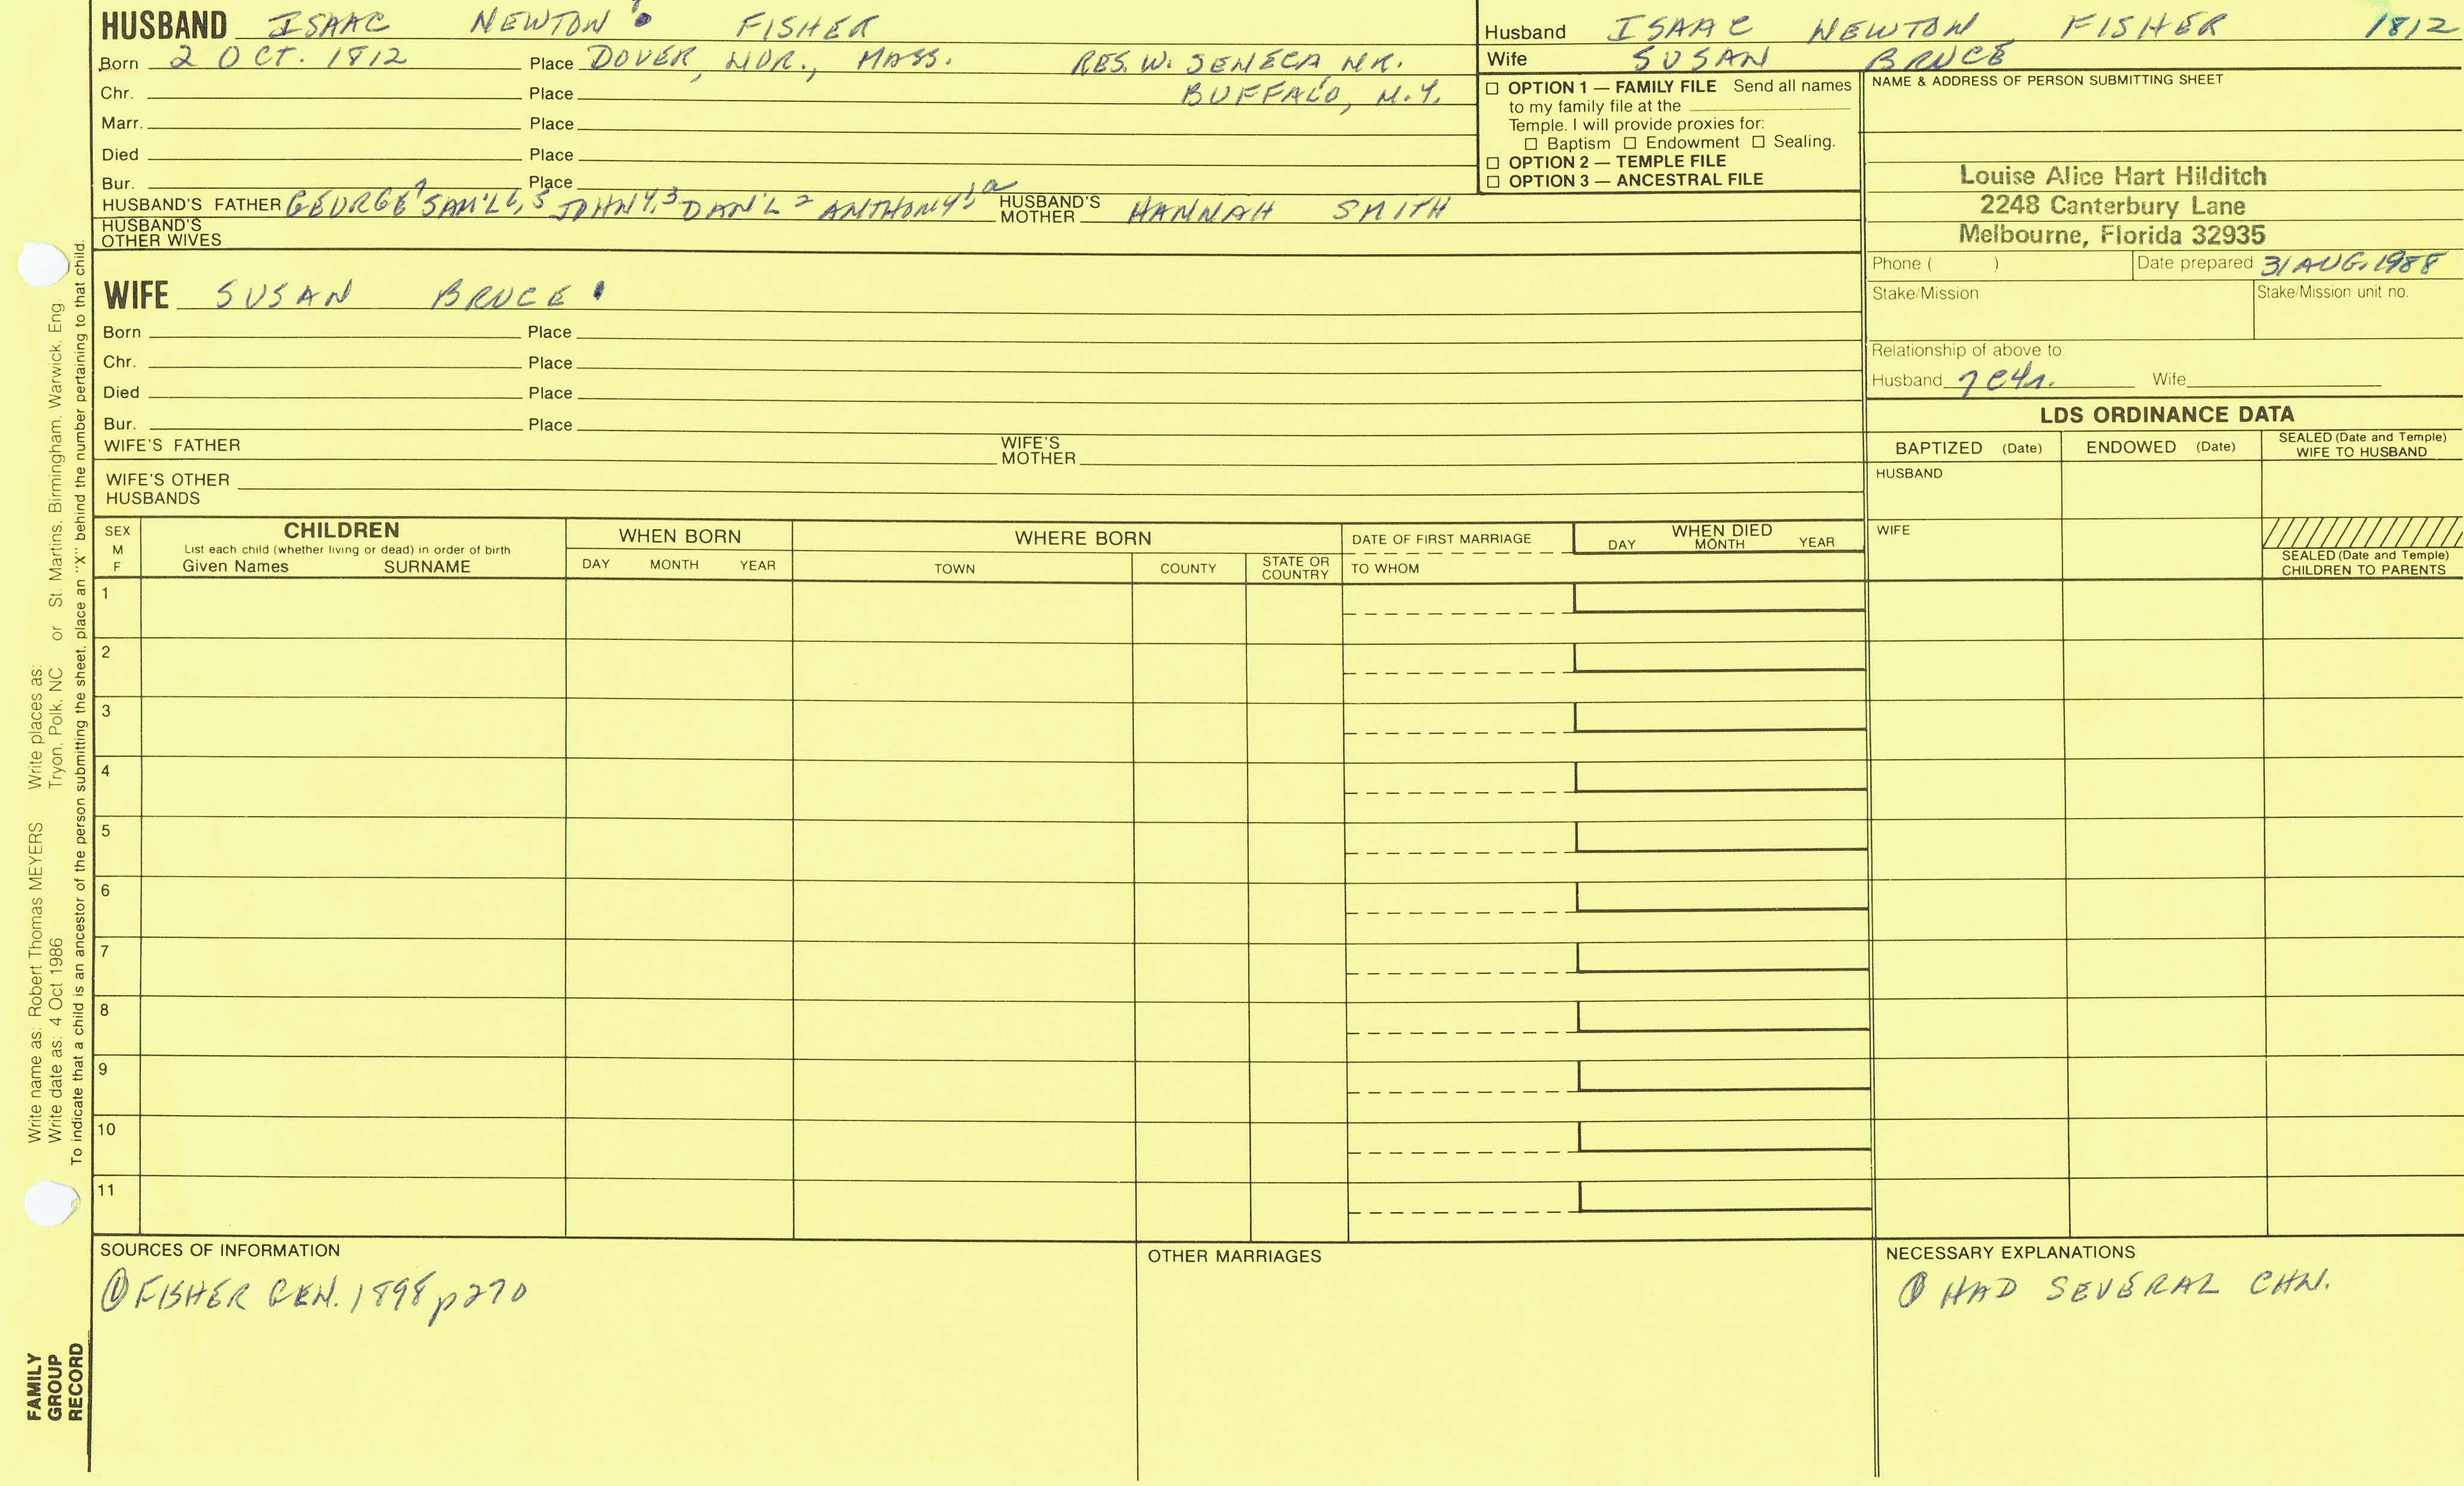 HUSBAND ISAAC NEWTON FISHER
Born 2 OCT. 1812 Place DOVER, NOR., MASS. RES. W. SENECA NR.
Chr. Place BUFFALO, N.Y.
Marr. Place
Died Place
Bur. Place
HUSBAND'S FATHER GEORGE 7 SAM'L 6,5 JOHN 4,3 DAN'L 2 ANTHONY 1,a HUSBAND'S MOTHER HANNAH SMITH
HUSBAND'S OTHER WIVES
WIFE SUSAN BRUCE
Born Place
Chr. Place
Died Place
Bur. Place
WIFE'S FATHER WIFE'S MOTHER
WIFE'S OTHER HUSBANDS
Husband ISAAC NEWTON FISHER 1812
Wife SUSAN BRUCE
☐ OPTION 1 — FAMILY FILE Send all names
to my family file at the
Temple. I will provide proxies for:
☐ Baptism ☐ Endowment ☐ Sealing.
☐ OPTION 2 — TEMPLE FILE
☐ OPTION 3 — ANCESTRAL FILE
NAME & ADDRESS OF PERSON SUBMITTING SHEET
Louise Alice Hart Hilditch
2248 Canterbury Lane
Melbourne, Florida 32935
Phone ( ) Date prepared 31 AUG. 1988
Stake/Mission Stake/Mission unit no.
Relationship of above to:
Husband 7C4r. Wife
LDS ORDINANCE DATA
BAPTIZED (Date) ENDOWED (Date) SEALED (Date and Temple) WIFE TO HUSBAND
HUSBAND
WIFE
SEALED (Date and Temple)
CHILDREN TO PARENTS
SEX M F
CHILDREN
List each child (whether living or dead) in order of birth
Given Names SURNAME
WHEN BORN
DAY MONTH YEAR
WHERE BORN
TOWN COUNTY STATE OR COUNTRY
DATE OF FIRST MARRIAGE
TO WHOM
WHEN DIED
DAY MONTH YEAR
1
2
3
4
5
6
7
8
9
10
11
SOURCES OF INFORMATION
① FISHER GEN. 1898 p270
OTHER MARRIAGES
NECESSARY EXPLANATIONS
① HAD SEVERAL CHN.
Write name as: Robert Thomas MEYERS Write places as:
Write date as: 4 Oct 1986 Tryon, Polk, NC or St. Martins, Birmingham, Warwick, Eng
To indicate that a child is an ancestor of the person submitting the sheet, place an "X" behind the number pertaining to that child.
FAMILY
GROUP
RECORD